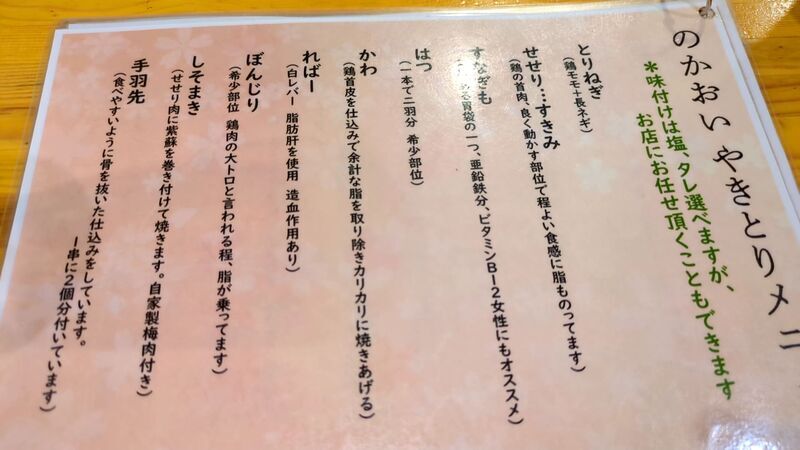 のかおいやきとりメニ
*味付けは塩、タレ選べますが、
お店にお任せ頂くこともできます
とりねぎ
(鶏モモ+長ネギ)
せせり…すきみ
(鶏の首肉、良く動かす部位で程よい食感に脂ものってます)
すなぎも
ある胃袋の一つ、亜鉛鉄分、ビタミンB12女性にもオススメ)
はつ
(一本で二羽分 希少部位)
かわ
(鶏首皮を仕込みで余計な脂を取り除きカリカリに焼きあげる)
ればー
(白レバー 脂肪肝を使用 造血作用あり)
ぼんじり
(希少部位 鶏肉の大トロと言われる程、脂が乗ってます)
しそまき
(せせり肉に紫蘇を巻き付けて焼きます。自家製梅肉付き)
手羽先
(食べやすいように骨を抜いた仕込みをしています。
一串に2個分付いています)